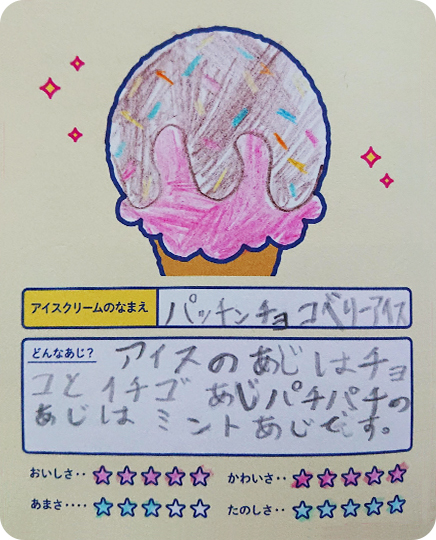 アイスクリームのなまえ パッチンチョコベリーアイス
どんなあじ? アイスのあじはチョ
コとイチゴ あじパチパチの
あじは ミントあじです。
おいしさ‥ ☆☆☆☆☆ かわいさ‥ ☆☆☆☆☆
あまさ‥‥ ☆☆☆☆☆ たのしさ‥ ☆☆☆☆☆